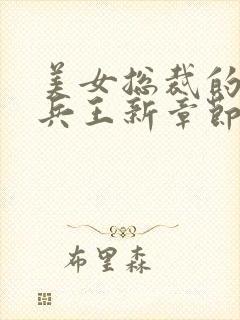 美女总裁的
兵王新章節
布里森